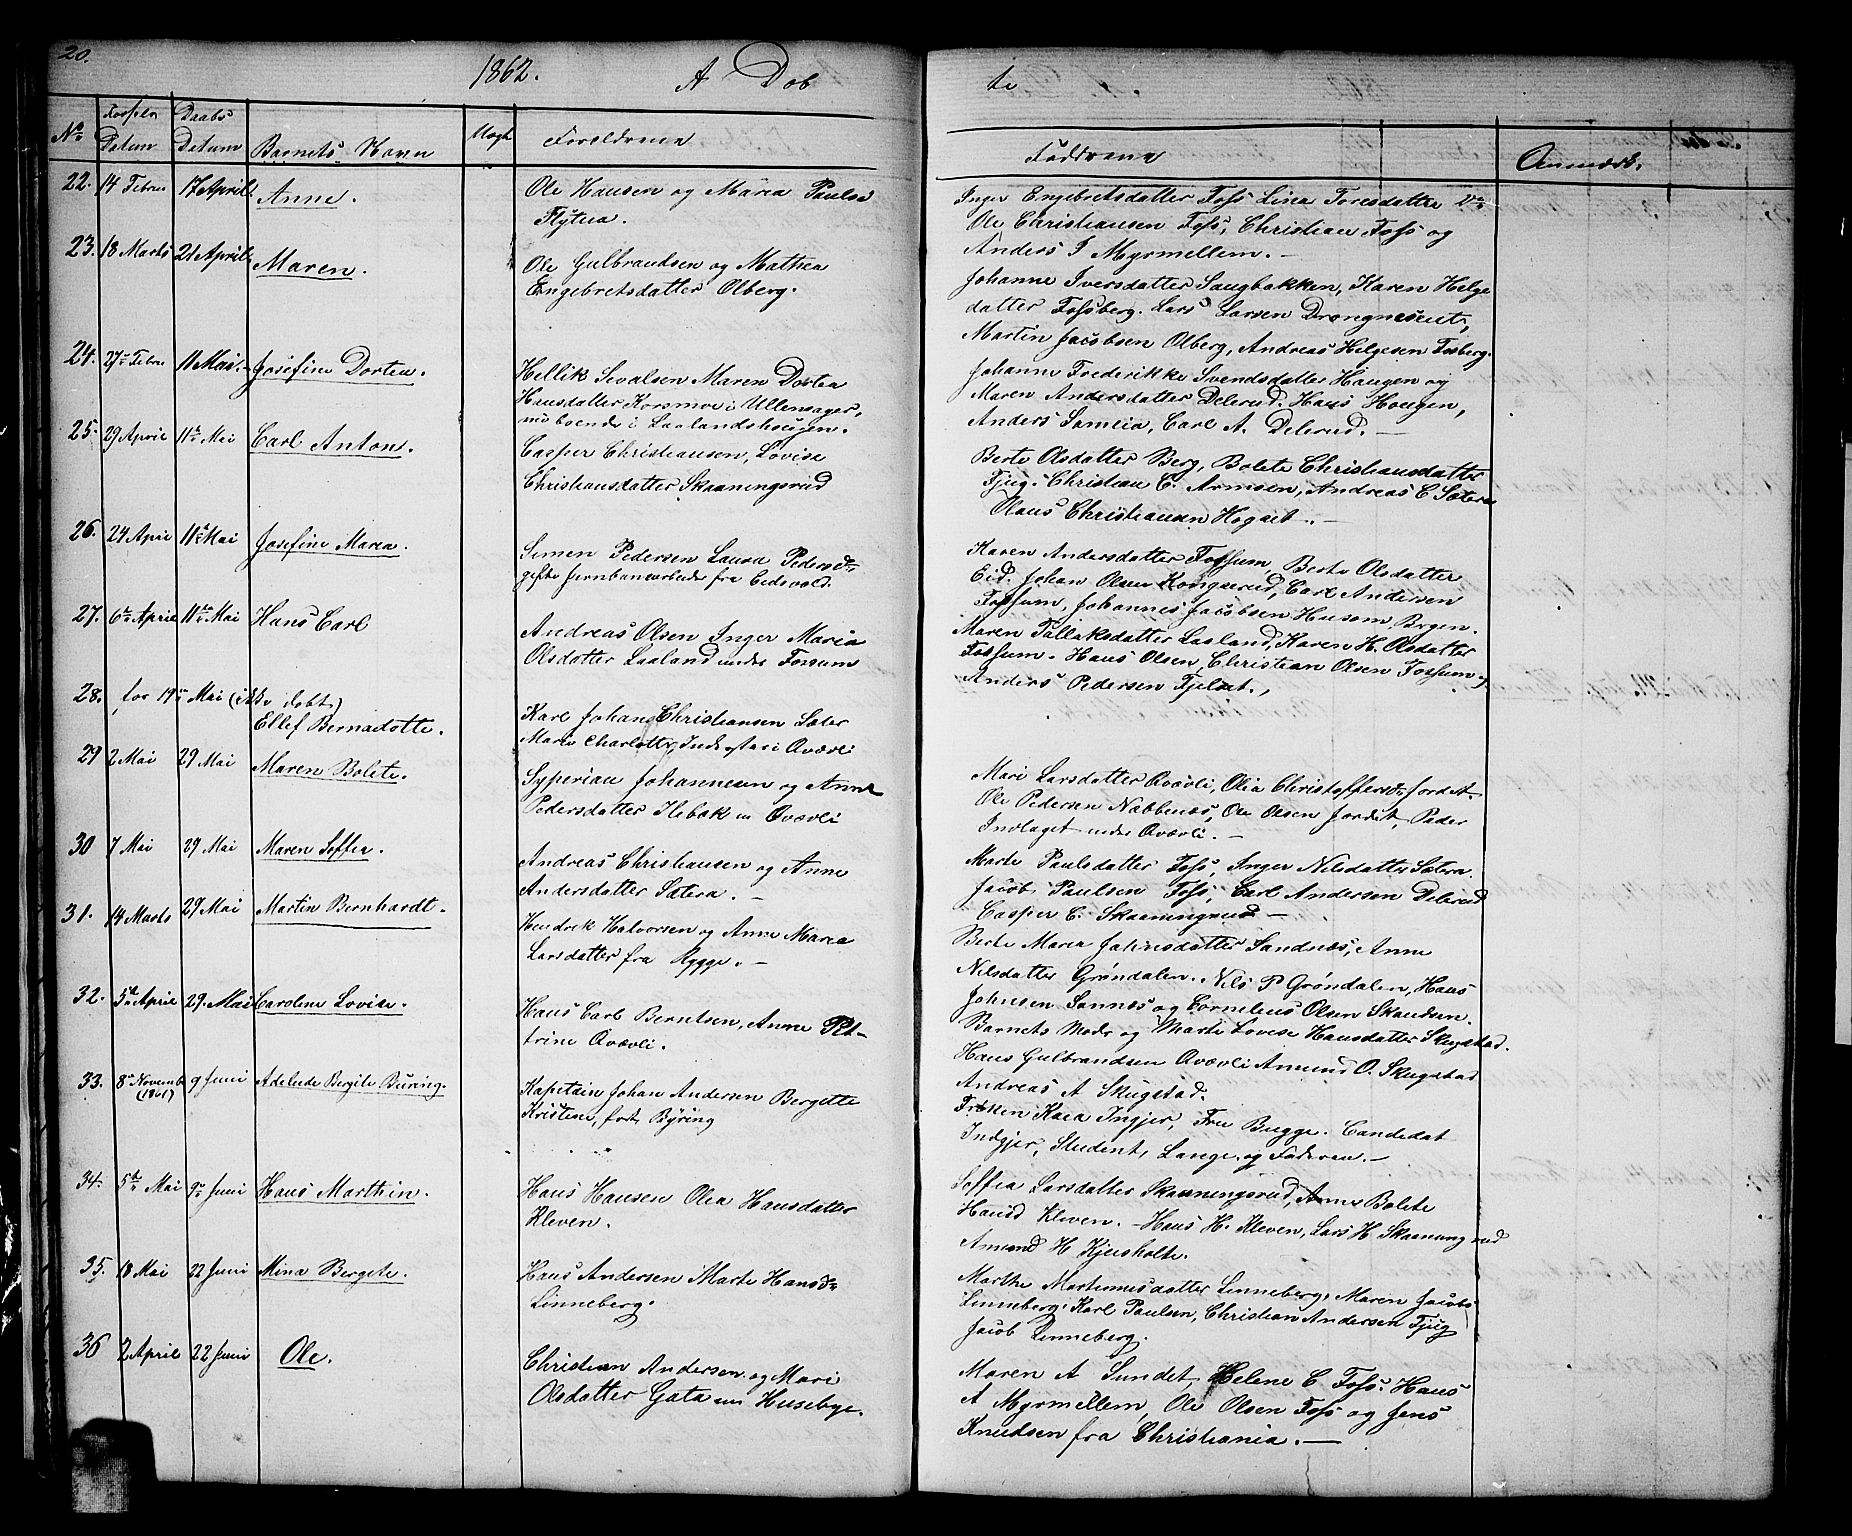 20.
1862. A Dob
te
No
Fødsels Daabs
Datum Datum Barnets Navn
Forældrene
Faddrene
Anmærk.
22. 14 Febru 17 April Anne.
Ole Hansen og Maria Pauls
Flytua.
Inger Engebretsdatter Foss Lina Toresdatter
Ole Christiansen Foss, Christian Foss og
Anders J Myrmellem.—
23. 18 Marts 21 April Maren.
Ole Gulbrandsen og Mathea
Engebretsdatter Olberg.
Johanne Iversdatter Saugbakken, Karen Helge
datter Fossberg. Lars Larsen Drongneseiet,
Martin Jacobsen Olberg, Andreas Helgesen Fosberg.
24. 27de Febru 11 Mai. Josefine Dortea.
Hellik Sevalsen Maren Dortea
Hansdatter Korsmoe i Ullensager,
nu boende i Laalandshougen.
Johanne Frederikke Svendsdatter Haugen og
Maren Andersdatter Delerud. Hans Hougen,
Anders Sameia, Carl A. Delerud.—
25. 29 April 11te Mai Carl Anton.
Casper Christiansen, Lovise
Christiansdatter Skaaningsrud
Berte Olsdatter Berg, Bolete Christiansdatter
Fjug. Christian C. Armsen, Andreas C Sætera
Claus Christiansen Hogait.—
26. 24 April 11te Mai Josefine Maria.
Simen Pedersen Laura Pedersdr
gifte Jernbanearbeider fra Eidsvold.
Karen Andersdatter Fossum, Berte Olsdatter
Eid. Johan Olsen Kongsrud, Carl Andersen
Fossum, Johannes Jacobsen Husom Brgen.
27. 6te April 11te Mai Hans Carl
Andreas Olsen Inger Maria
Olsdatter Laaland under Fossum
Maren Tollaksdatter Laaland, Karen H. Olsdatter
Fossum. Hans Olsen, Christian Olsen Fossum og
Anders Pedersen Fjelset.,
28. for 19de Mai (ikke døbt)
Ellef Bernadotte.
Karl Johan Christiansen Sæter
Marie Charlotte, Inderst i Aaævli
29 2 Mai 29 Mai Maren Bolete.
Syperian Johannesen og Anne
Pedersdatter Ilebæk un Ovævli
Mari Larsdatter Ovævli, Olia Christoffersdr Jordet.
Ole Pedersen Nabbenæs, Ole Olsen Jordet, Peder
Indlaget under Ovævli.—
30 7 Mai 29 Mai Maren Soffia.
Andreas Christiansen og Anne
Andersdatter Sætera.—
Marte Paulsdatter Foss, Inger Nilsdatter Sætera.
Jacob Paulsen Foss, Carl Andersen Delerud
Casper C. Skaaningsrud—
31. 14 Marts 29 Mai Martin Bernhardt.
Hendrik Halvorsen og Anne Maria
Larsdatter fra Rygge.—
Berte Maria Johnsdatter Sandnæs, Anne
Nilsdatter Grøndalen. Nils P Grøndalen, Hans
Johnsen Sannæs og Cornelius Olsen Skaudsen.
32. 5te April 29. Mai Caroline Lovise.
Hans Carl Berntsen, Anne Pet-
trine Ovævli.
Barnets Moder og Marte Lovise Hansdatter Skugstad.
Hans Gulbrandsen Ovævli Amund O. Skugstad
Andreas A Skugstad.
33. 8de Novemb (1861) 9 Juni Adelside Bergite Büring.
Kapetain Johan Andersen Bergitte
Kristine, født Byring
Frøken Kaia Ingjer, Fru Bugge. Candidat
Indgjer, Student, Lange og Faderen.—
34. 5te Mai 9de Juni Hans Marthin.
Hans Hansen Olea Hansdatter
Kleven.
Soffia Larsdatter Skaaningsrud, Anne Bolete
Hansd Kleven.—Hans H. Kleven, Lars H Skaaningsrud
Amund H Kjusholte.
35. 18 Mai 22 Juni Mina Bergete.
Hans Andersen Marte Hansdr
Linneberg.
Marthe Martinusdatter Linneberg, Maren Jacobs
Linneberg. Karl Paulsen, Christian Andersen Fjug
Jacob Linneberg.
36 2 April 22 Juni Ole.
Christian Andersen og Mari
Olsdatter Gata un Husebye.
Maren A Sundet, Helene C Foss. Hans
A Myrmellem, Ole Olsen Foss og Jens
Knudsen fra Christiania.—